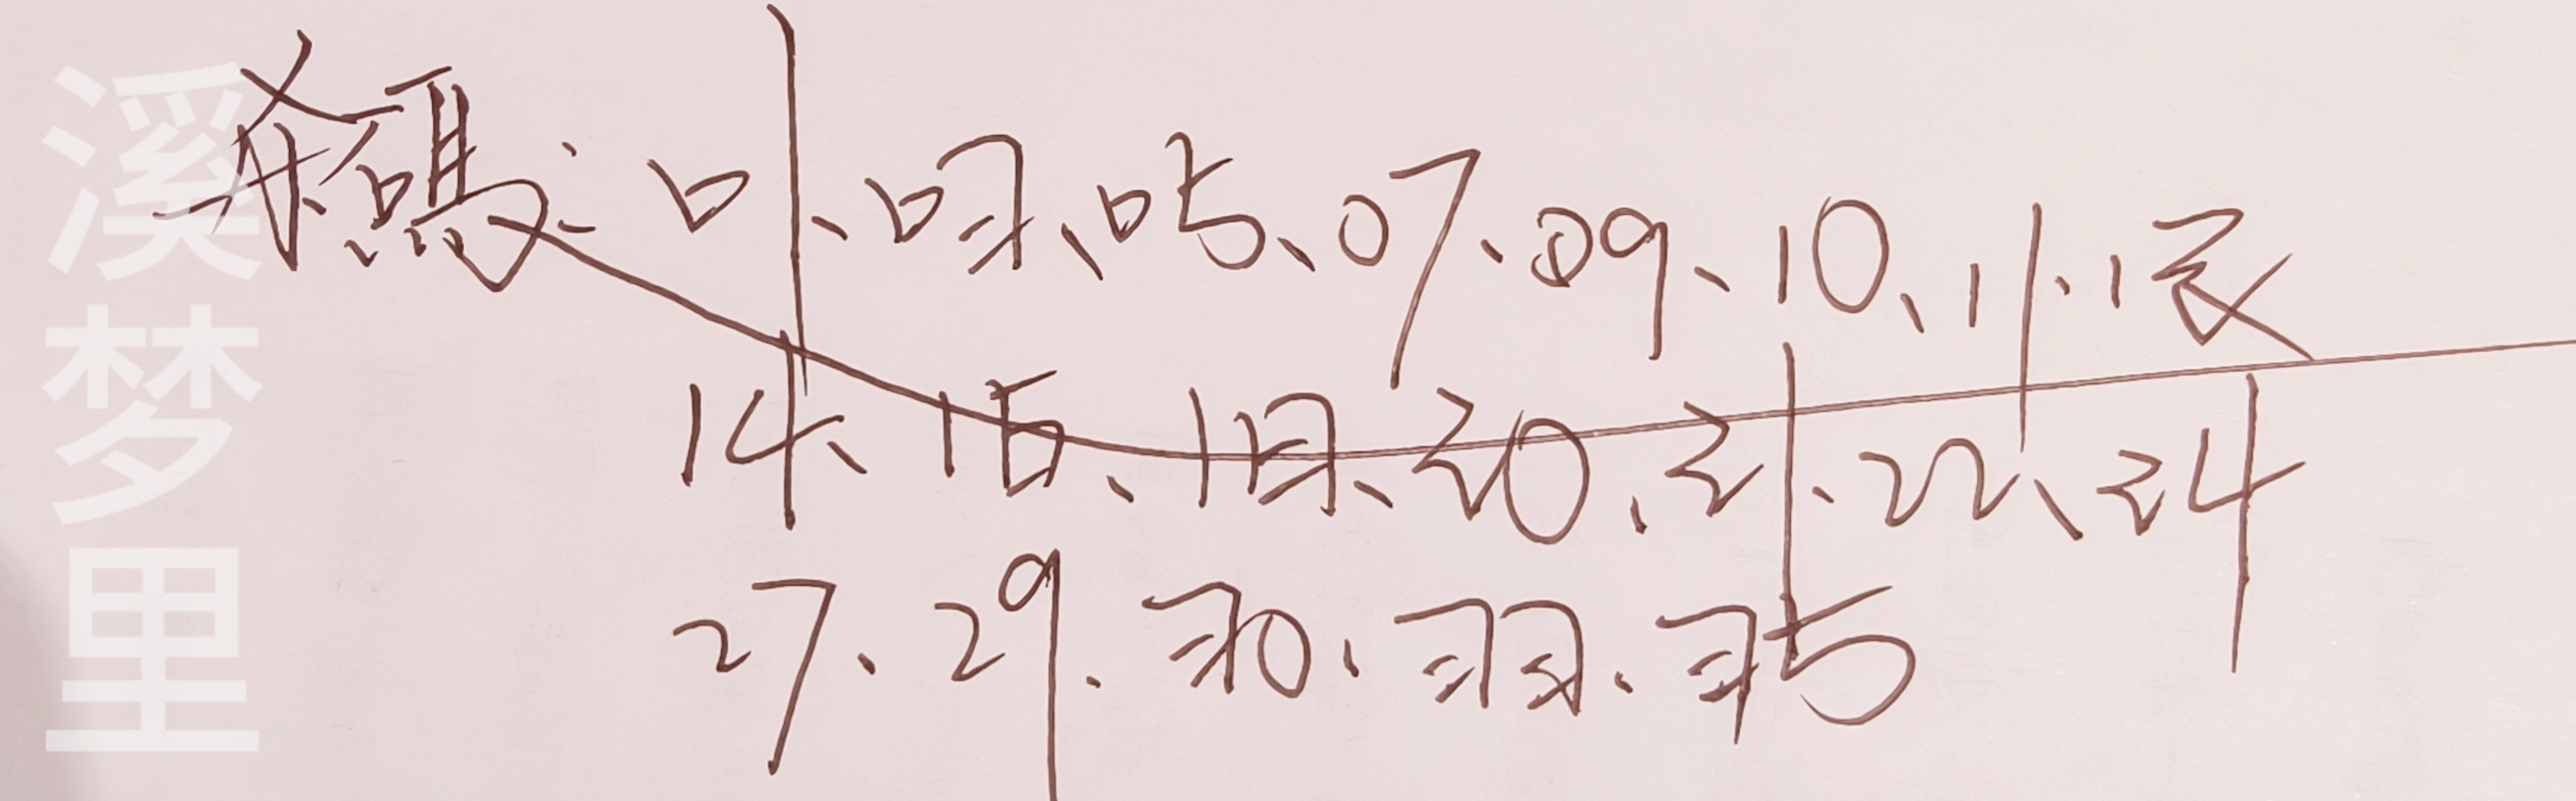 溪梦里
杀碼：01、03、05、07、09、10、11、12
14、15、18、20、21、22、24
27、29、30、33、35